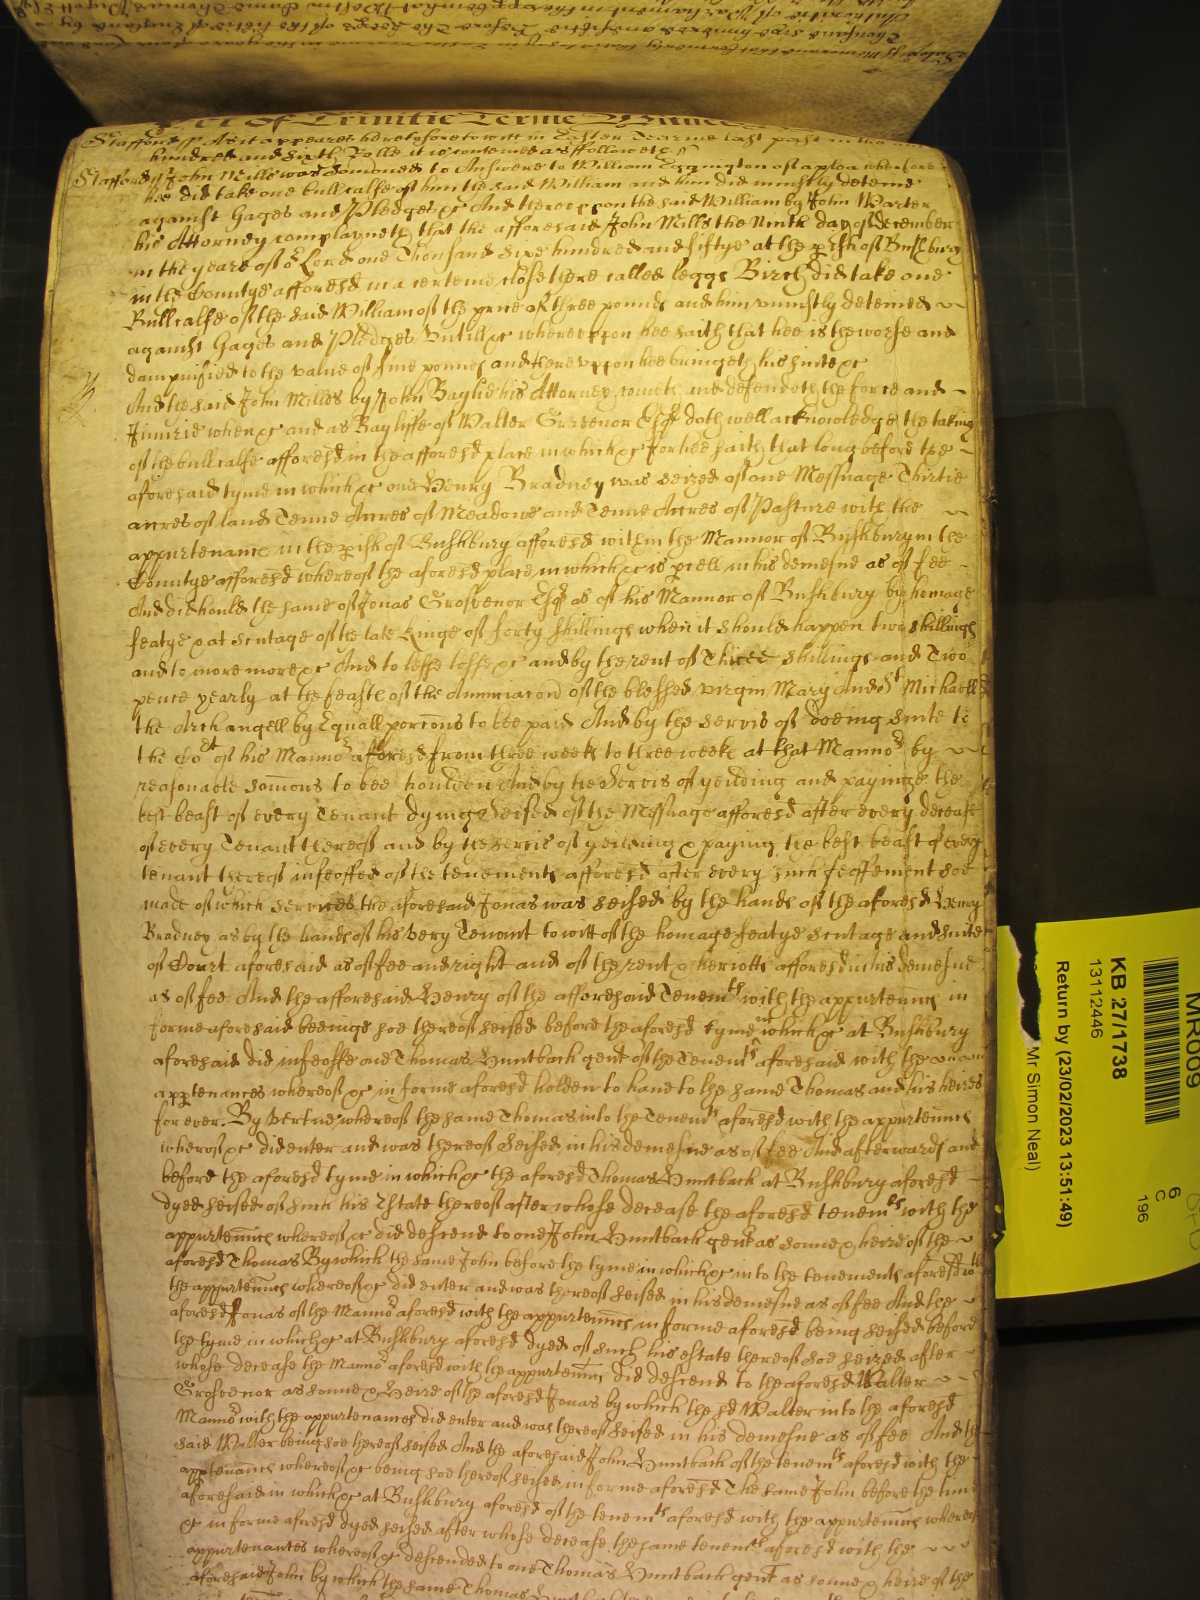 yet of Trinitie Terme
Stafford ss As it appeares heretofore to witt in Easter Tearme last past in the
hundred and sixth Rolle it is conteined as followeth ss
Stafford ss John Mills was somoned to Answere to William Eggington of a plea wherefore
hee did take one bull calfe of him the said William and him did uniustly deteine
against Gages and Pledges &c And thereuppon the said William by John Warter
his Attorney complayneth that the afforesaid John Mills the Ninth day of December
in the yeare of or Lord one Thousand Six hundred and fiftye at the pish of Bushbury
in the Countye afforesd in a certeine close there called leggs Birch did take one
Bull calfe of the said William of the price of three pounds and him uniustly deteined
against Gages and Pledges Untill &c whereuppon hee saith that hee is the worse and
dampnified to the value of five pounds and thereuppon hee bringeth his suite &c
And the said John Milles by John Baylie his Attorney cometh and defendeth the force and
Iniurie when &c and as Bayliffe of Walter Grosvenor Esqr doth well acknowledge the taking
of the bull calfe afforesd in the afforesd place in which &c For hee saith that long before the
aforesaid tyme in which &c one Henry Bradney was seized of one Messuage Thirtie
acres of land Tenne Acres of Meadowe and Tenne Acres of Pasture with the
appurtenance in the pish of Bushbury afforesd within the Mannor of Bushbury in the
Countye afforesd whereof the aforesd place in which &c is pcell in his demesne as of fee
And did hould the same of Jonas Grosvenor Esqr as of his Mannor of Bushbury by homage
fealtye & at scutage of the late Kinge of forty shillings when it should happen two shillings
and to more more &c And to lesse lesse &c and by the rent of Three shillings and Two
pence yearly at the feaste of the Annunciacon of the blessed virgin Mary And St Michaell
the Archangell by Equall porcons to bee paid And by the servis of doeing suite to
the Cot of his Mannor afforesd from three weeks to three weeks at that Mannor by
reasonable somons to bee houlden And by the Servis of yeilding and payinge the
best beast of every Tenant dying Seised of the Messuage afforesd after every decease
of every Tenant thereof and by the servis of yeilding & paying the best beast of every
tenant thereof infeoffed of the tenements afforesd after every such feoffement soe
made of which services the aforesaid Jonas was seised by the hands of the aforesd Henry
Bradney as by the hands of his very Tenant to witt of the homage fealtye scutage and suite
of Court aforesaid as of fee and right and of the rent & heriotts afforesd in his demesne
as of fee And the afforesaid Henry of the afforesaid Tenemts with the appurtennces in
forme aforesaid beeinge soe thereof seised before the aforesd tyme in which &c at Bushbury
aforesaid did infeoffe one Thomas Huntback gent of the Tenemts aforesaid with the
apptenances whereof &c in forme aforesd holden to have to the same Thomas and his heires
for ever By vertue whereof the same Thomas into the Tenemts aforesd with the appurtennces
wherof &c did enter and was thereof Seised in his demesne as of fee And afterwards and
before the aforesd tyme in which &c the aforesd Thomas Huntback at Bushbury aforesd
dyed seised of such his Estate thereof after whose decease the aforesd tenemts with the
appurtennces whereof &c did descend to one John Huntback gent as sonne & heire of the
aforesd Thomas By which the same John before the tyme in which &c into the tenements aforesd with
the appurtennces whereof &c did enter and was thereof seised in his demesne as of fee And the
aforesd Jonas of the Mannor aforesd with the appurtennces in forme aforesd being seised before
the tyme in which &c at Bushbury aforesd dyed of such his estate thereof soe seized after
whose decease the Mannor aforesd with the appurtennces did descend to the aforesd Walter
Grosvenor as sonne & Heire of the aforesd Jonas by which the sd Walter into the aforesd
Mannor with the appurtenances did enter and was thereof seised in his demesne as of fee And the
said Walter being soe thereof seised And the aforesaid John Huntback of the tenemts aforesd with the
apptennces whereof &c being soe thereof seised in forme aforesd The same John before the time
aforesaid in which &c at Bushbury aforesd of the tenemts aforesd with the appurtennces whereof
&c in forme aforesd dyed seised after whose decease the same tenemts aforesd with the
appurtenances whereof &c descended to one Thomas Huntback gent as sonne & heire of the
aforesaid John by which the same Thomas
MR009
KB 27/1738
13112446
Return by (23/02/2023 13:51:49)
Mr Simon Neal)
6
C
196